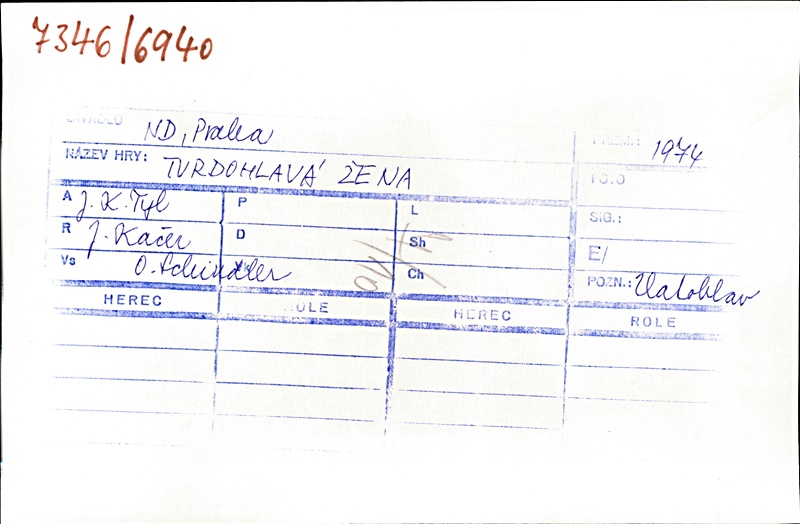 7346/6940
DIVADLO ND, Praha PREM.: 1974
NÁZEV HRY: TVRDOHLAVÁ ŽENA
A J. K. Tyl P L SIG.:
R J. Kačer D Sh E/
Vs O. Schindler Ch POZN.:
HEREC ROLE HEREC ROLE